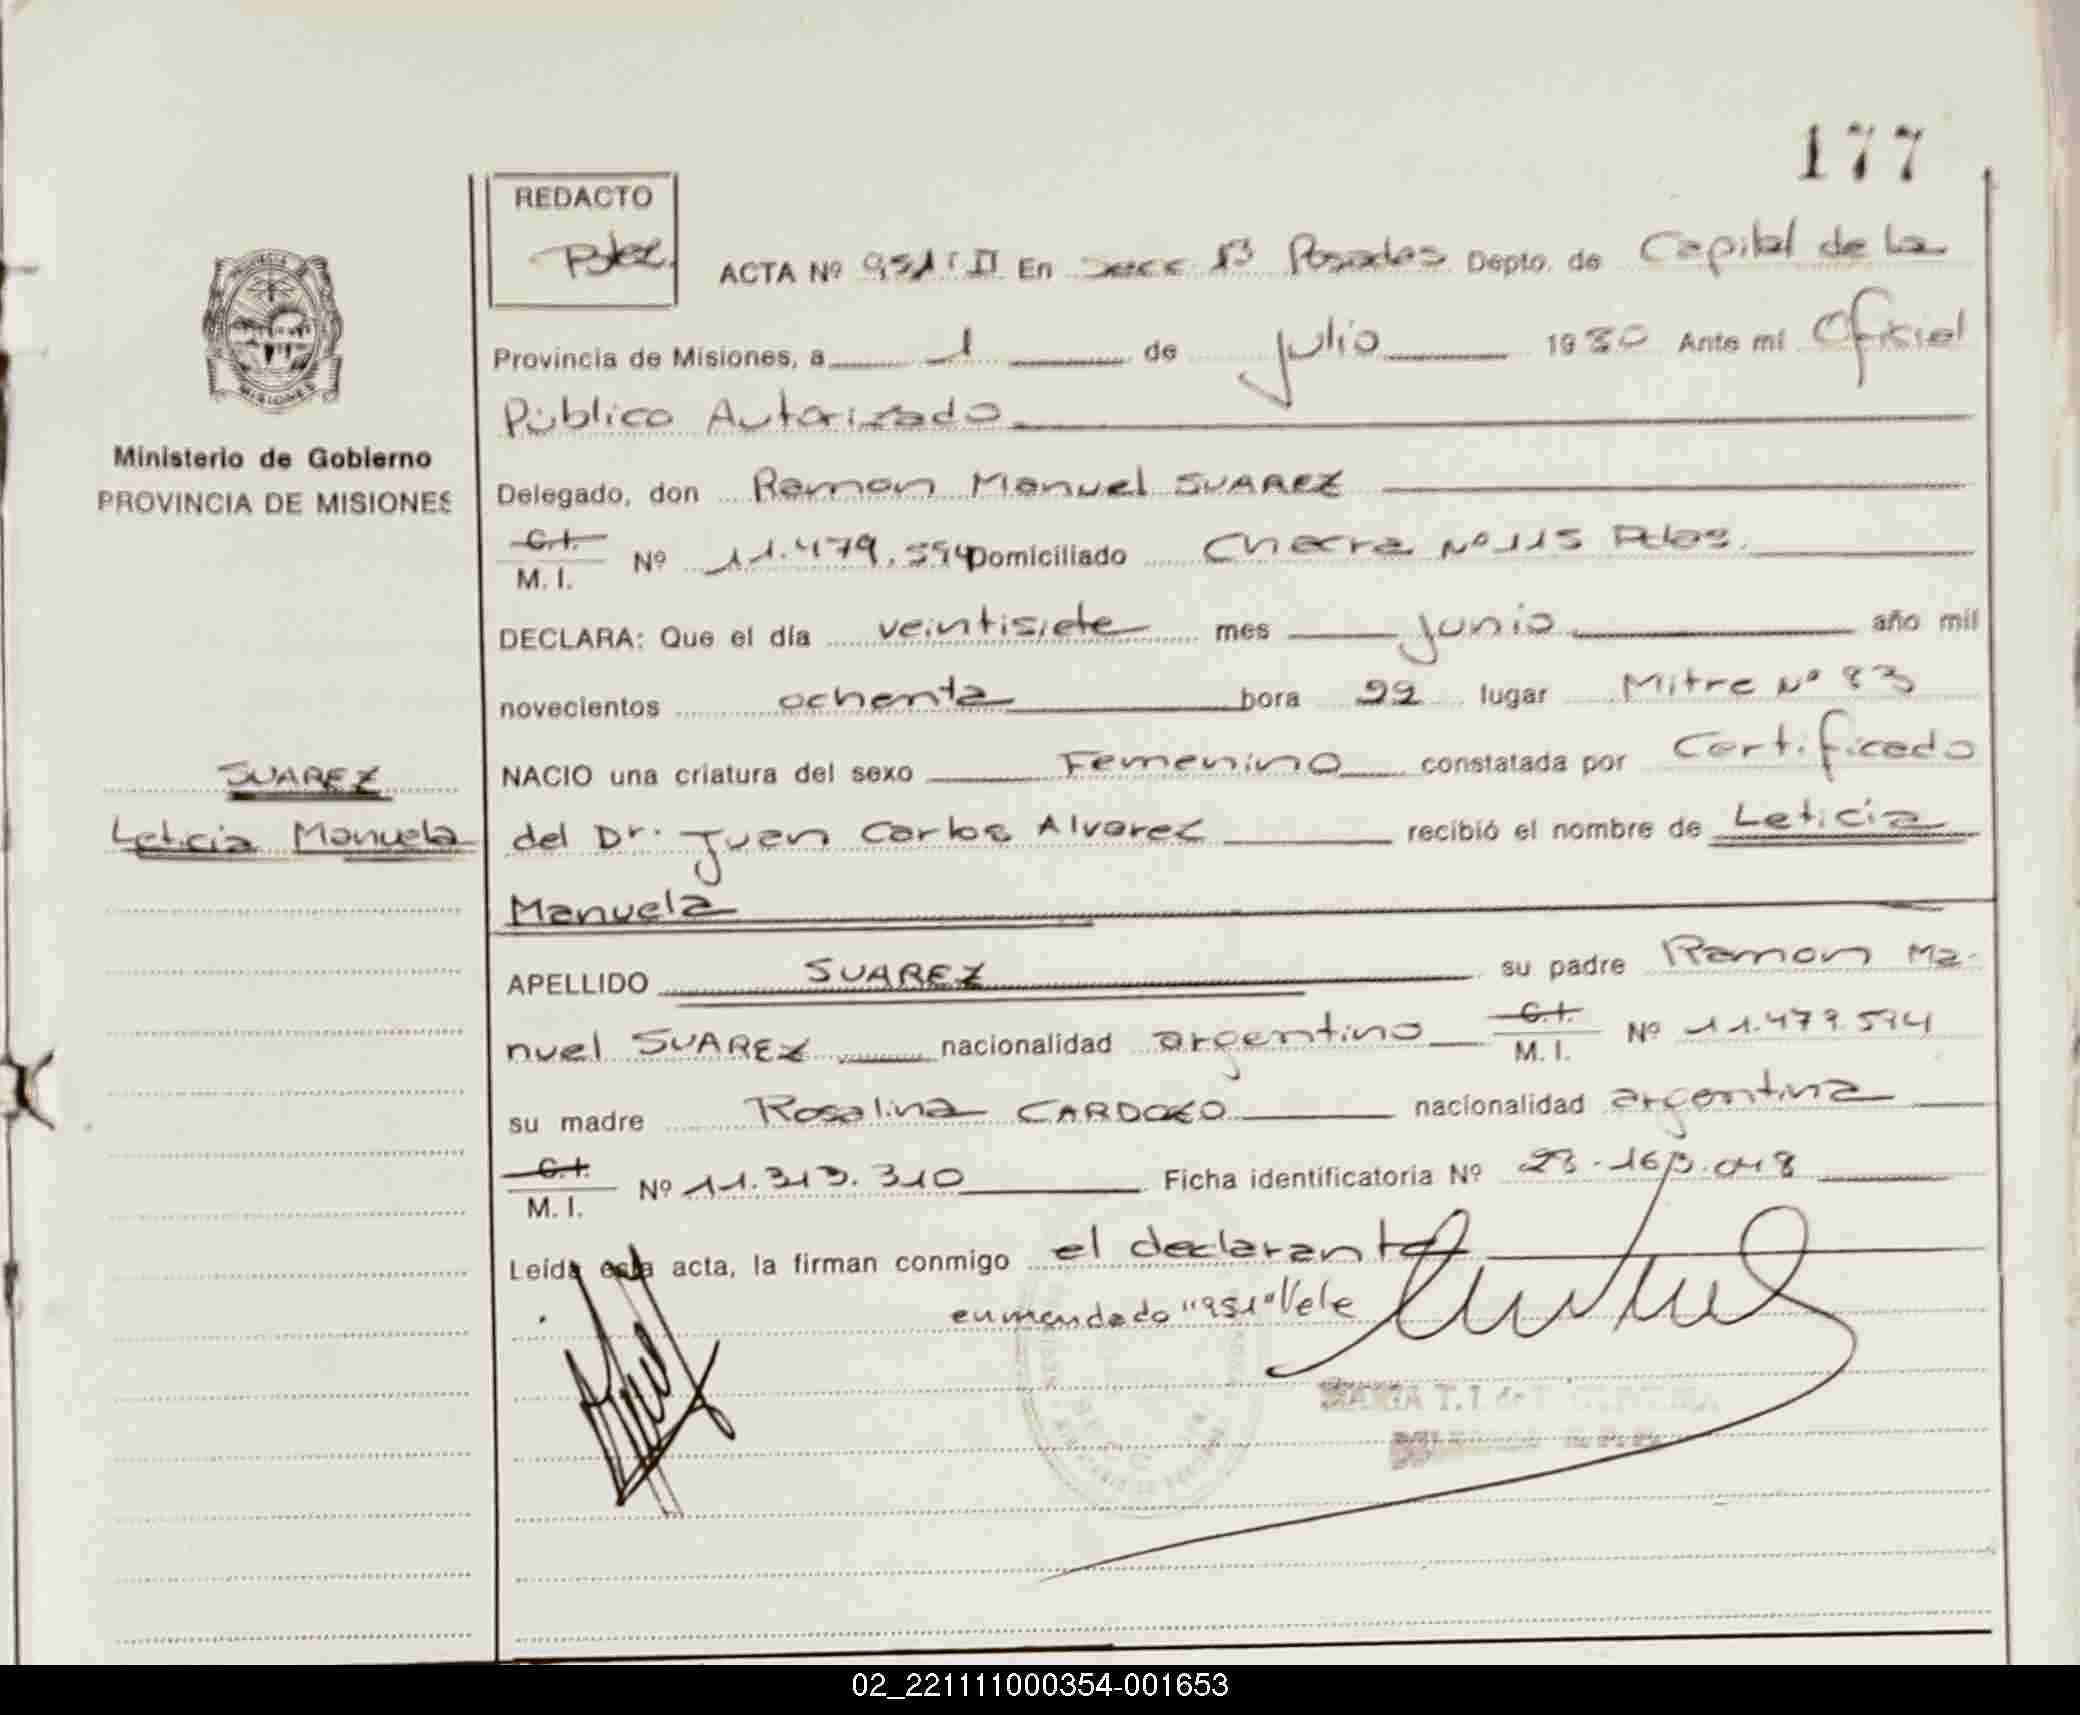 177
REDACTO
ACTA Nº 951 T II En Secc 1B Posadas Depto. de Capital de la
Provincia de Misiones, a 1 de julio 1980 Ante mí Oficial
Público Autorizado
MISIONES
Ministerio de Gobierno
PROVINCIA DE MISIONES
Delegado, don Ramon Manuel SUAREZ
C.I.
M. I. Nº 11.479.594 Domiciliado Chacra Nº 115 Pdas.
DECLARA: Que el día veintisiete mes junio año mil
novecientos ochenta hora 22 lugar Mitre Nº 83
SUAREZ
NACIO una criatura del sexo Femenino constatada por Certificado
Leticia Manuela
del Dr. Juan Carlos Alvarez recibió el nombre de Leticia
Manuela
APELLIDO SUAREZ su padre Ramon Ma-
nuel SUAREZ nacionalidad argentino C.I. M. I. Nº 11.479.594
su madre Rosalina CARDOZO nacionalidad argentina
C.I.
M. I. Nº 11.313.310 Ficha identificatoria Nº 23.163.048
Leída esta acta, la firman conmigo el declarante
enmendado "951" Vale
02_221111000354-001653